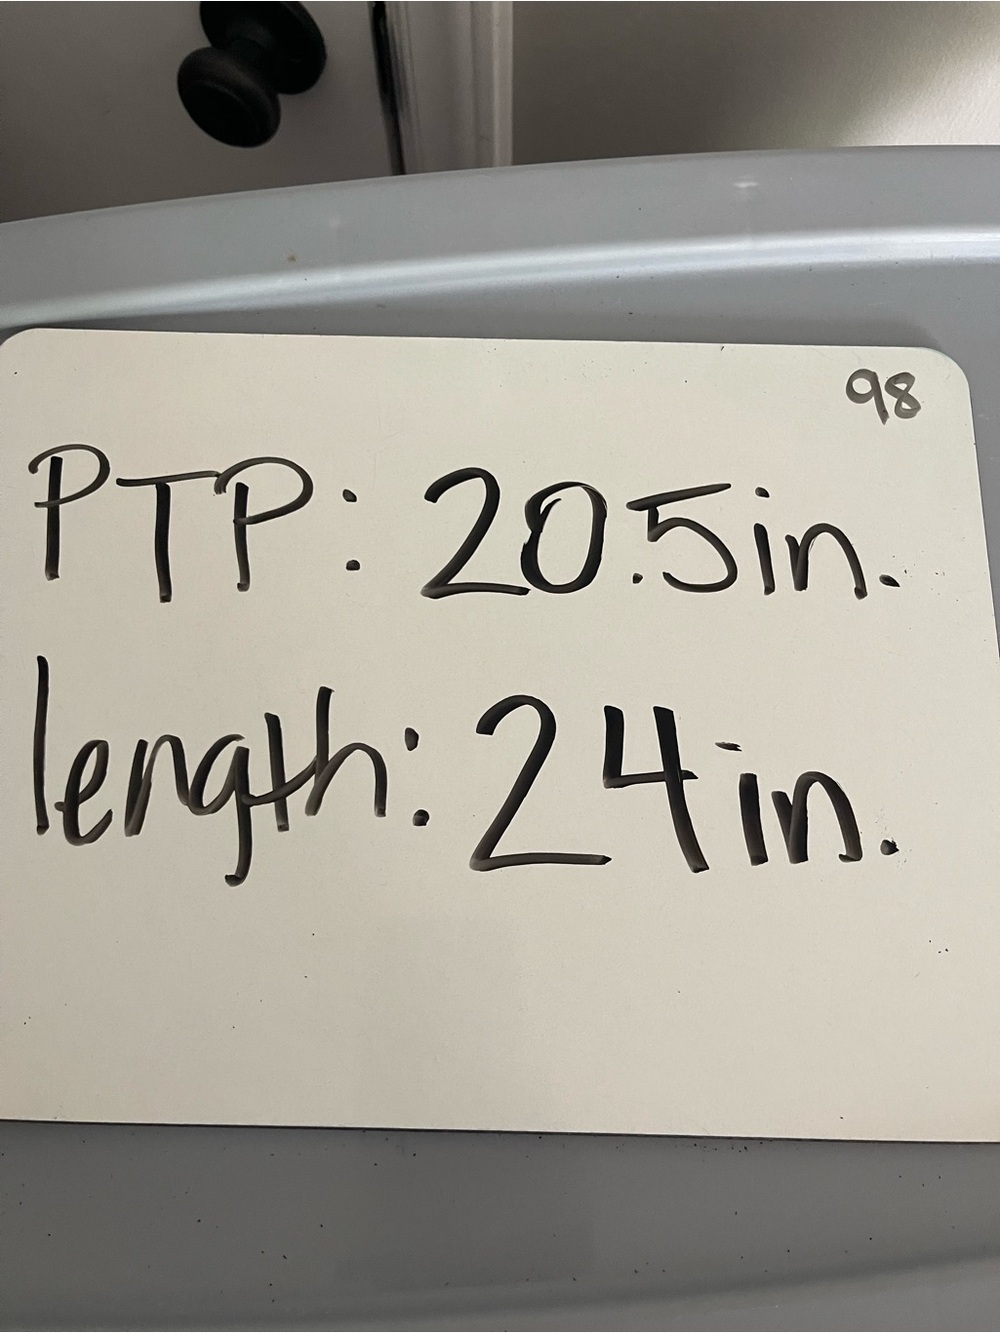 98
PTP: 20.5in.
length: 24in.